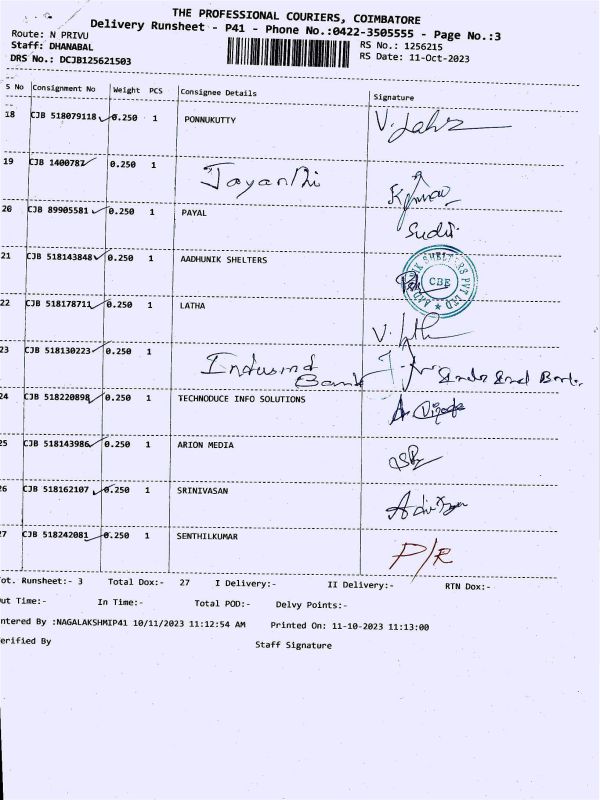 THE PROFESSIONAL COURIERS, COIMBATORE
Delivery Runsheet - P41 - Phone No.:0422-3505555 - Page No.:3
Route: N PRIVU
Staff: DHANABAL
DRS No.: DCJB125621503
RS No.: 1256215
RS Date: 11-Oct-2023
S No Consignment No Weight PCS Consignee Details Signature
18 CJB 518079118 0.250 1 PONNUKUTTY
19 CJB 1400787 0.250 1 Jayanthi Kumar
20 CJB 89905581 0.250 1 PAYAL Sudit
21 CJB 518143848 0.250 1 AADHUNIK SHELTERS AADHUNIK SHELTERS PVT LTD CBE
22 CJB 518178711 0.250 1 LATHA
23 CJB 518130223 0.250 1 Indusind Bank
24 CJB 518220898 0.250 1 TECHNODUCE INFO SOLUTIONS
25 CJB 518143986 0.250 1 ARION MEDIA
26 CJB 518162107 0.250 1 SRINIVASAN
27 CJB 518242081 0.250 1 SENTHILKUMAR P/R
ot. Runsheet:- 3 Total Dox:- 27 I Delivery:- II Delivery:- RTN Dox:-
ut Time:- In Time:- Total POD:- Delvy Points:-
ntered By :NAGALAKSHMIP41 10/11/2023 11:12:54 AM Printed On: 11-10-2023 11:13:00
erified By Staff Signature